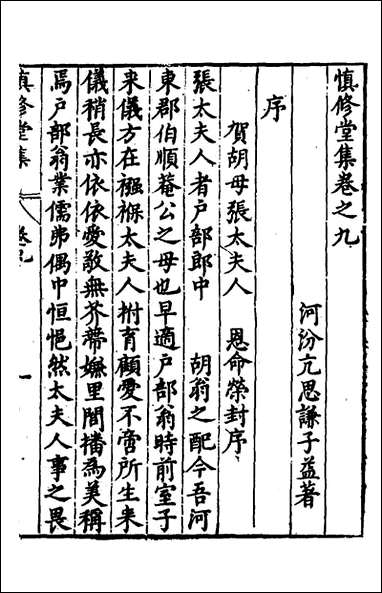 慎修堂集卷之九
河汾亢思謙子益著
序
賀胡母張太夫人　恩命榮封序
張太夫人者戶部郎中　胡翁之配今吾河
東郡伯順菴公之母也早適戶部翁時前室子
来儀方在襁褓太夫人拊育顧愛不啻所生来
儀稍長亦依依愛敬無芥蔕嫌里閭播為美稱
焉戶部翁業儒弗偶中恒悒然太夫人事之畏
慎修堂集　卷九　一